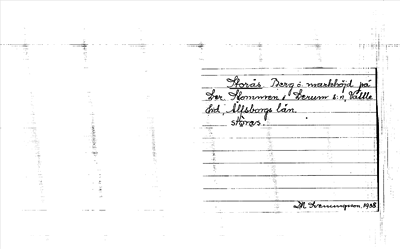 Storås Berg o. markhöjd på
Ler Stommen, Lerum s:n, Vättle
hd, Älfsborgs län.
storås.
Svenungsson, 1938